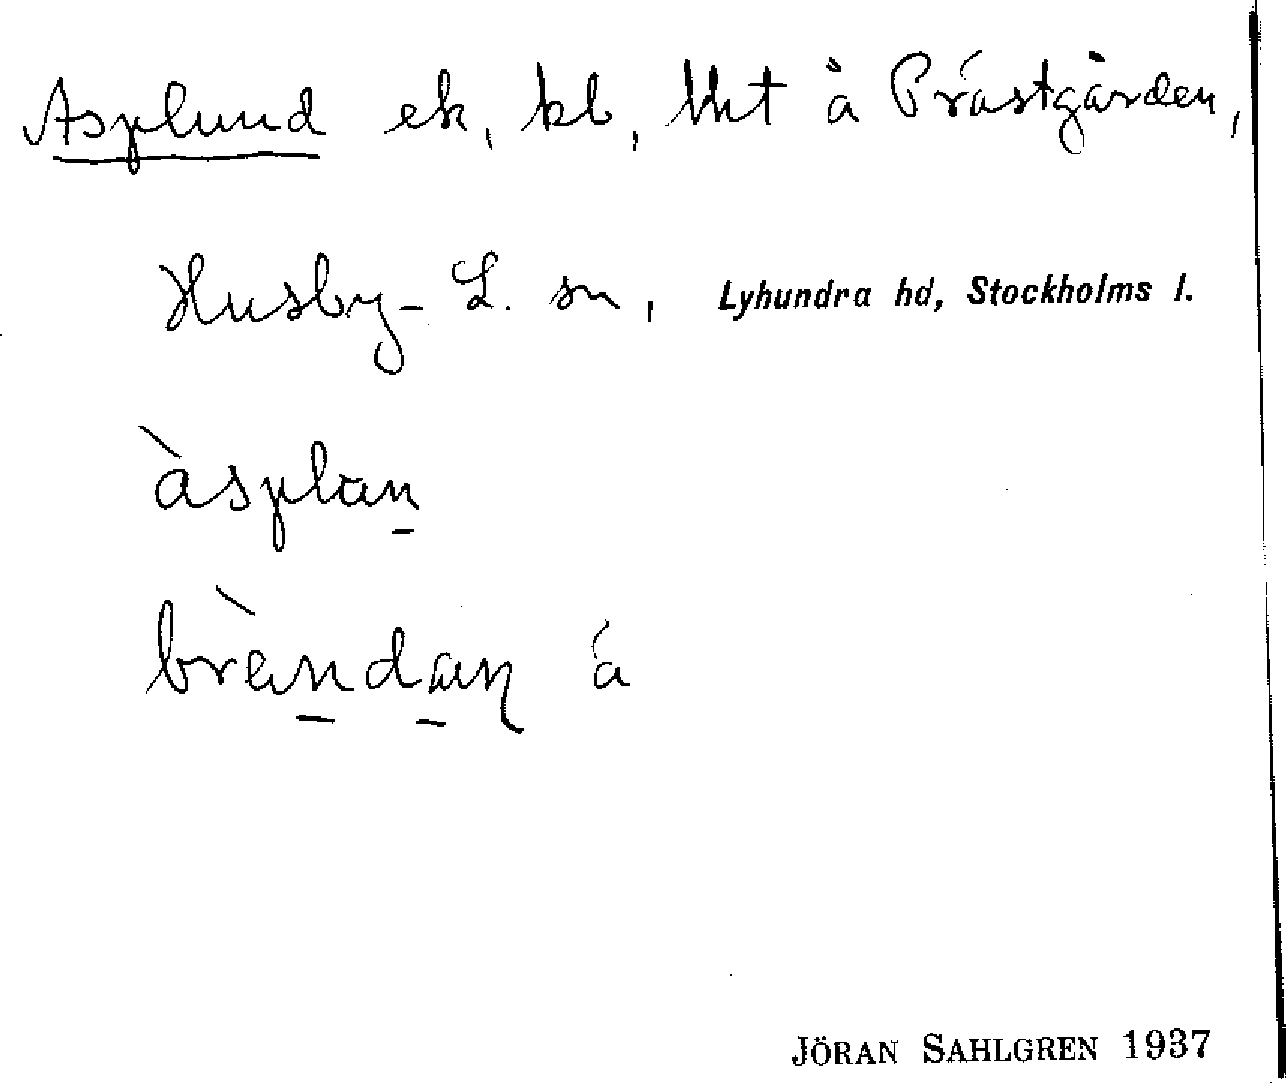 Asplund ek, kb, lht å Prästgården,
Husby-L. sn, Lyhundra hd, Stockholms l.
àsplan
brèndan á
JÖRAN SAHLGREN 1937